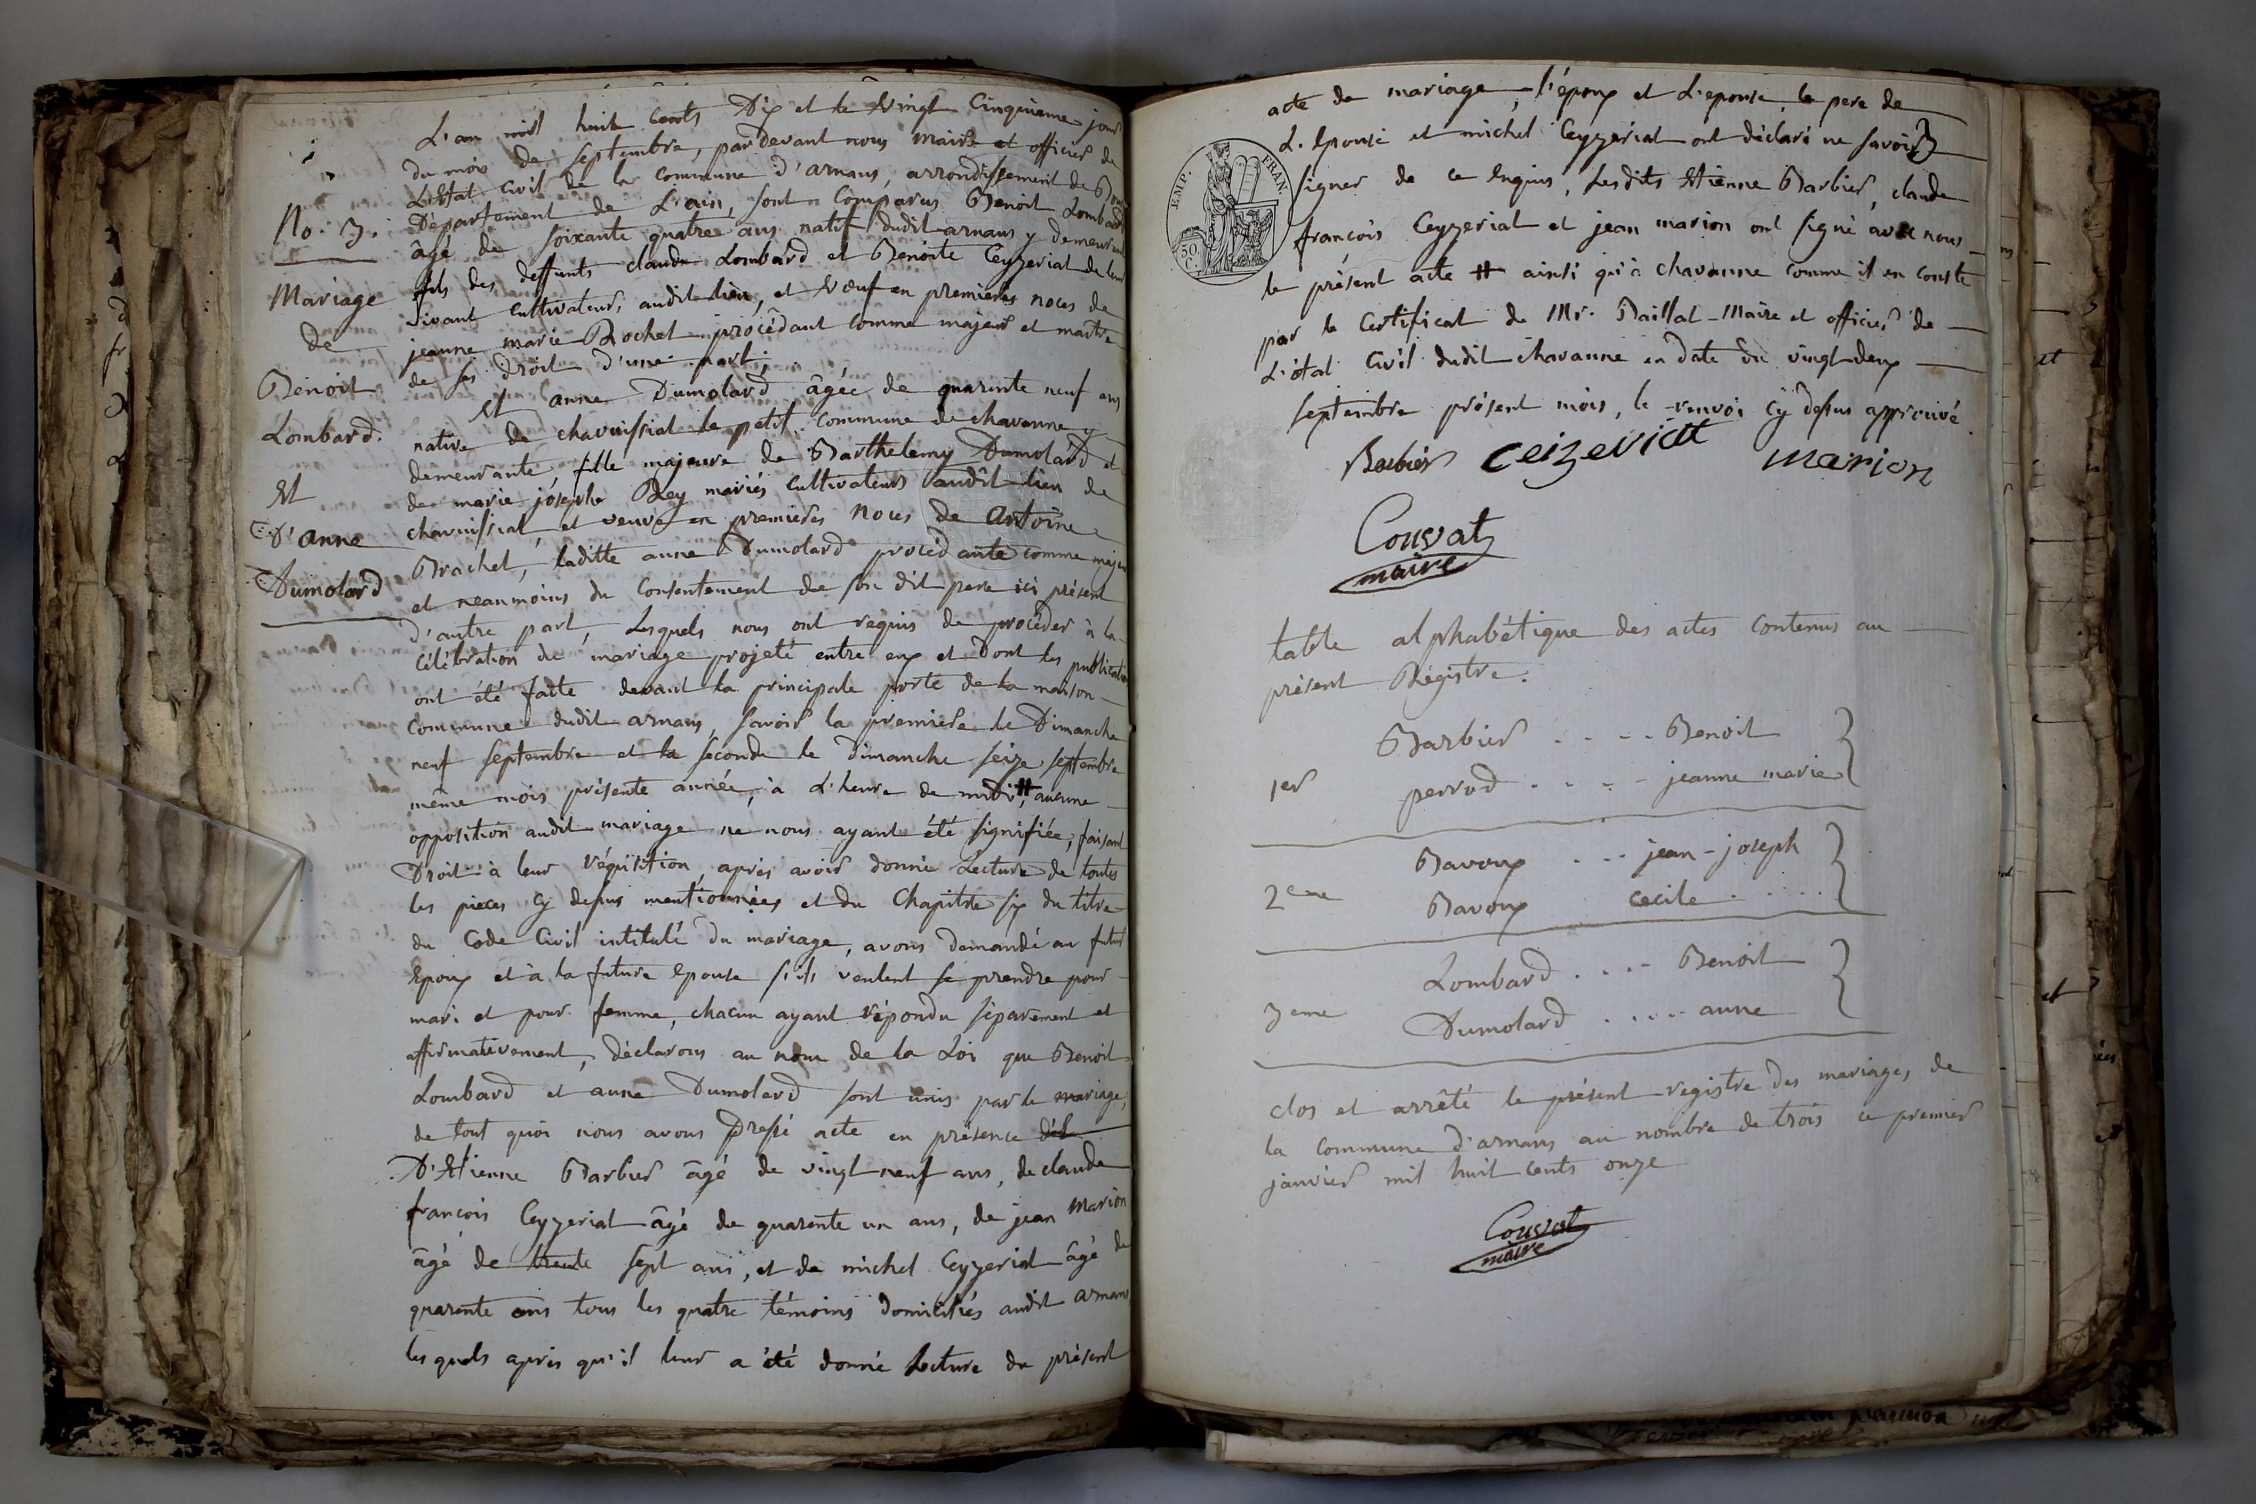 L'an mil huit cents Dix et le vingt Cinquieme jour
du mois de septembre, pardevant nous maire et officier de
L'Etat Civil de la commune d'arnans, arrondissement de Bourg
Département de L'ain, sont Comparus Benoit Lombard
âgé de soixante quatre ans natif dudit arnans y demeurant
fils des deffunts claude Lombard et Benoite Ceyzeriat de leur
vivant cultivateurs audit lieu, et veuf en premieres noces de
jeanne marie Brochet procédant comme majeur et maitre
de ses droit d'une part;
No. 3.
Mariage
de
Benoit
Lombard.
Et
D'anne
Dumolard
Et anne Dumolard âgée de quarente neuf ans
native de chavuissiat le petit commune de chavanne y
demeurante, fille majeure de Barthelemy Dumolard et
de marie josephe Rey mariés cultivateurs audit lieu de
chavuissiat, et veuve en premieres noces de antoine
Brachet, laditte anne Dumolard procédante comme majeu
et neanmoins du consentement de son dit pere ici présent
d'autre part, Lesquels nous ont requis de procéder à la
célébration du mariage projeté entre eux et dont les publications
ont été faitte devant la principale porte de la maison
commune dudit arnans, savoir la premiere le Dimanche
neuf septembre et la seconde le dimanche seize septembre
même mois présente année, à L'heure de midi # aucune
opposition audit mariage ne nous ayant été signifiée, faisant
Droit à leur réquisition, après avoir donné Lecture de toutes
les pieces cy dessus mentionnées et du Chapitre six du titre
du Code Civil intitulé Du mariage, avons demandé au futur
Epoux et à la future Epouse s'ils veulent se prendre pour
mari et pour femme, chacun ayant répondu séparement et
affirmativement, déclarons au nom de la Loi que Benoit
Lombard et anne Dumolard sont unis par le mariage,
de tout quoi nous avons dressé acte en présence
D'Etienne Barbier âgé de vingt neuf ans, de claude
françois Ceyzeriat âgé de quarente un ans, de jean marion
âgé de trente sept ans, et de michel Ceyzeriat âgé de
quarente ans tous les quatre témoins domiciliés audit arnans
les quels après qu'il leur a été donné Lecture du présent
acte de mariage, L'époux et L'epouse, le pere de
L'Epouse et michel Ceyzeriat ont déclaré ne savoir
signer de ce Enquis, Lesdits Etienne Barbier, claude
françois Ceyzeriat et jean marion ont signé avec nous
le présent acte # ainsi qu'à chavanne comme il en conste
par le Certificat de Mr. Baillat Maire et officier de
L'état Civil dudit chavanne en date du vingt deux
septembre présent mois, le renvoi cy dessus approuvé.
EMP. FRAN.
50 C.
Barbier ceizeriat marion
Couvat
maire
table alphabétique des actes contenus au
présent Régistre.
Barbier . . . . Benoit
1er perrod . . . . jeanne marie
Bavoux . . . jean-joseph
2eme Bavoux cecile . . . .
Lombard . . . . Benoit
3eme Dumolard . . . . . anne
clos et arrêté le présent registre des mariages, de
la commune d'arnans au nombre de trois ce premier
janvier mil huit cents onze
Couvat
maire